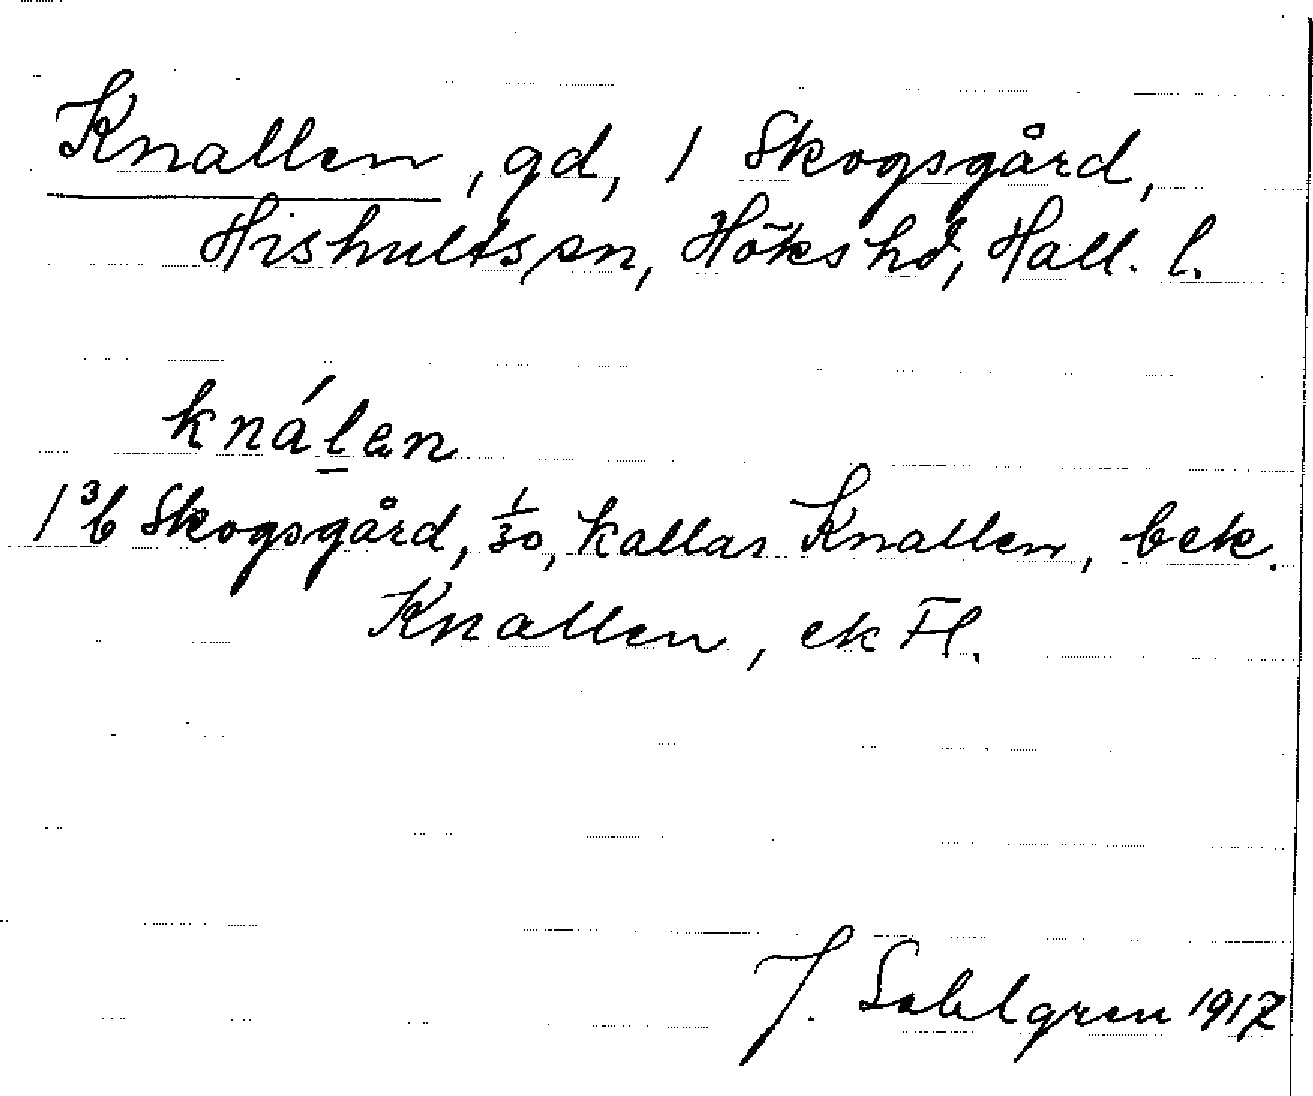 Knallen, gd, 1 Skogsgård,
Hishults sn, Höks hd, Hall. l.
knálen
1³b Skogsgård, 1/30, kallas Knallen, bek.
Knallen, ek Fl.
J. Sahlgren 1917